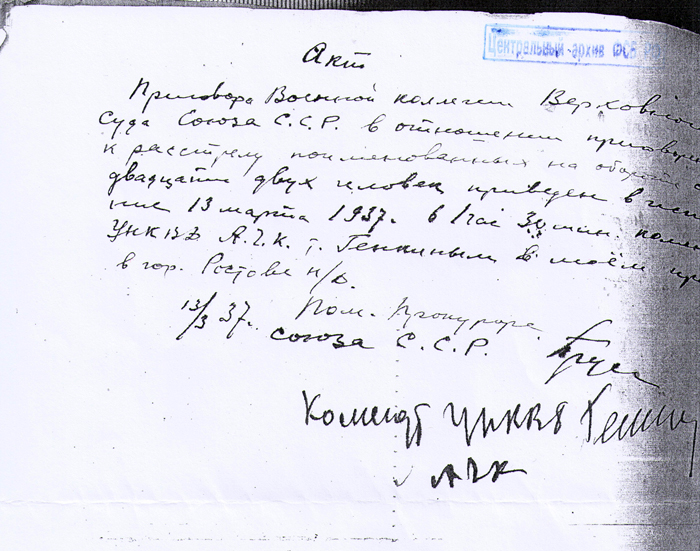 Центральный архив ФСБ
Акт
Приговора Военной коллегии Верховного
Суда Союза С.С.Р. в отношении приговор
к расстрелу поименованных на обороте
двадцати двух человек приведен в испол
ние 13 марта 1937г. в 1 час 30 мин. комен
УНКВД А.Ч.К. т. Генкиным в моём пр
в гор. Ростове н/Д.
13/3 37г. Пом. Прокурора
Союза С.С.Р.
Комендт УНКВД
АЧК